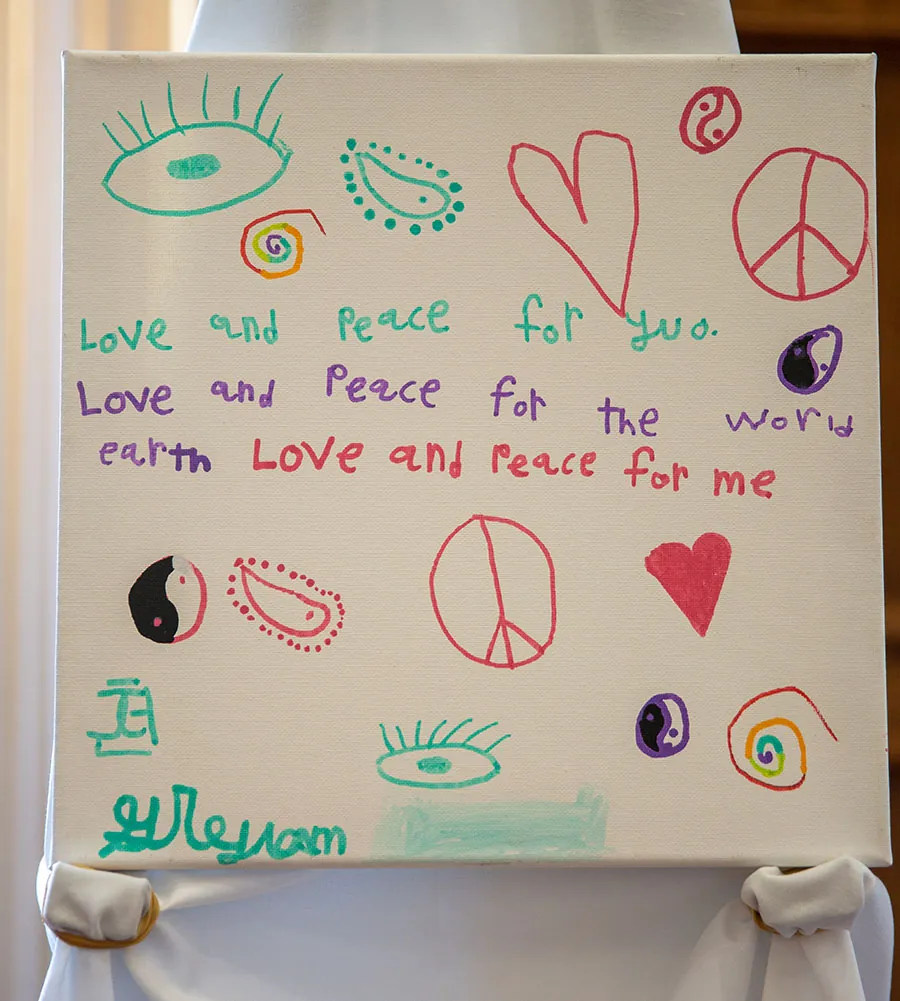 Love and Peace for yuo.
Love and Peace for the world
earth Love and Peace for me